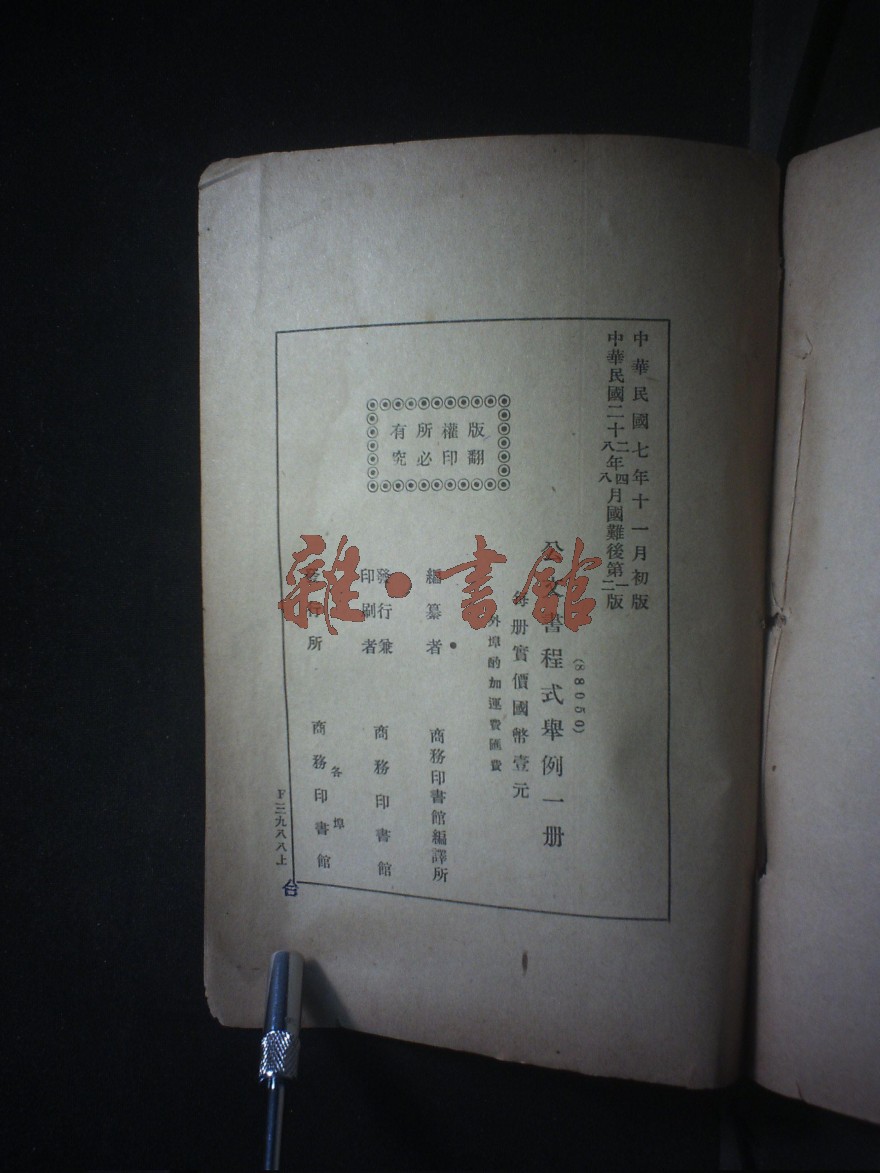 中華民國七年十一月初版
中華民國二十二年四月國難後第一版
八年八月二版
版權所有
翻印必究
(88050)
公文書程式舉例一册
每册實價國幣壹元
外埠酌加運費匯費
編纂者 商務印書館編譯所
發行兼印刷者 商務印書館
發行所 商務印書館
各埠
F三九八八上
台
雜·書館